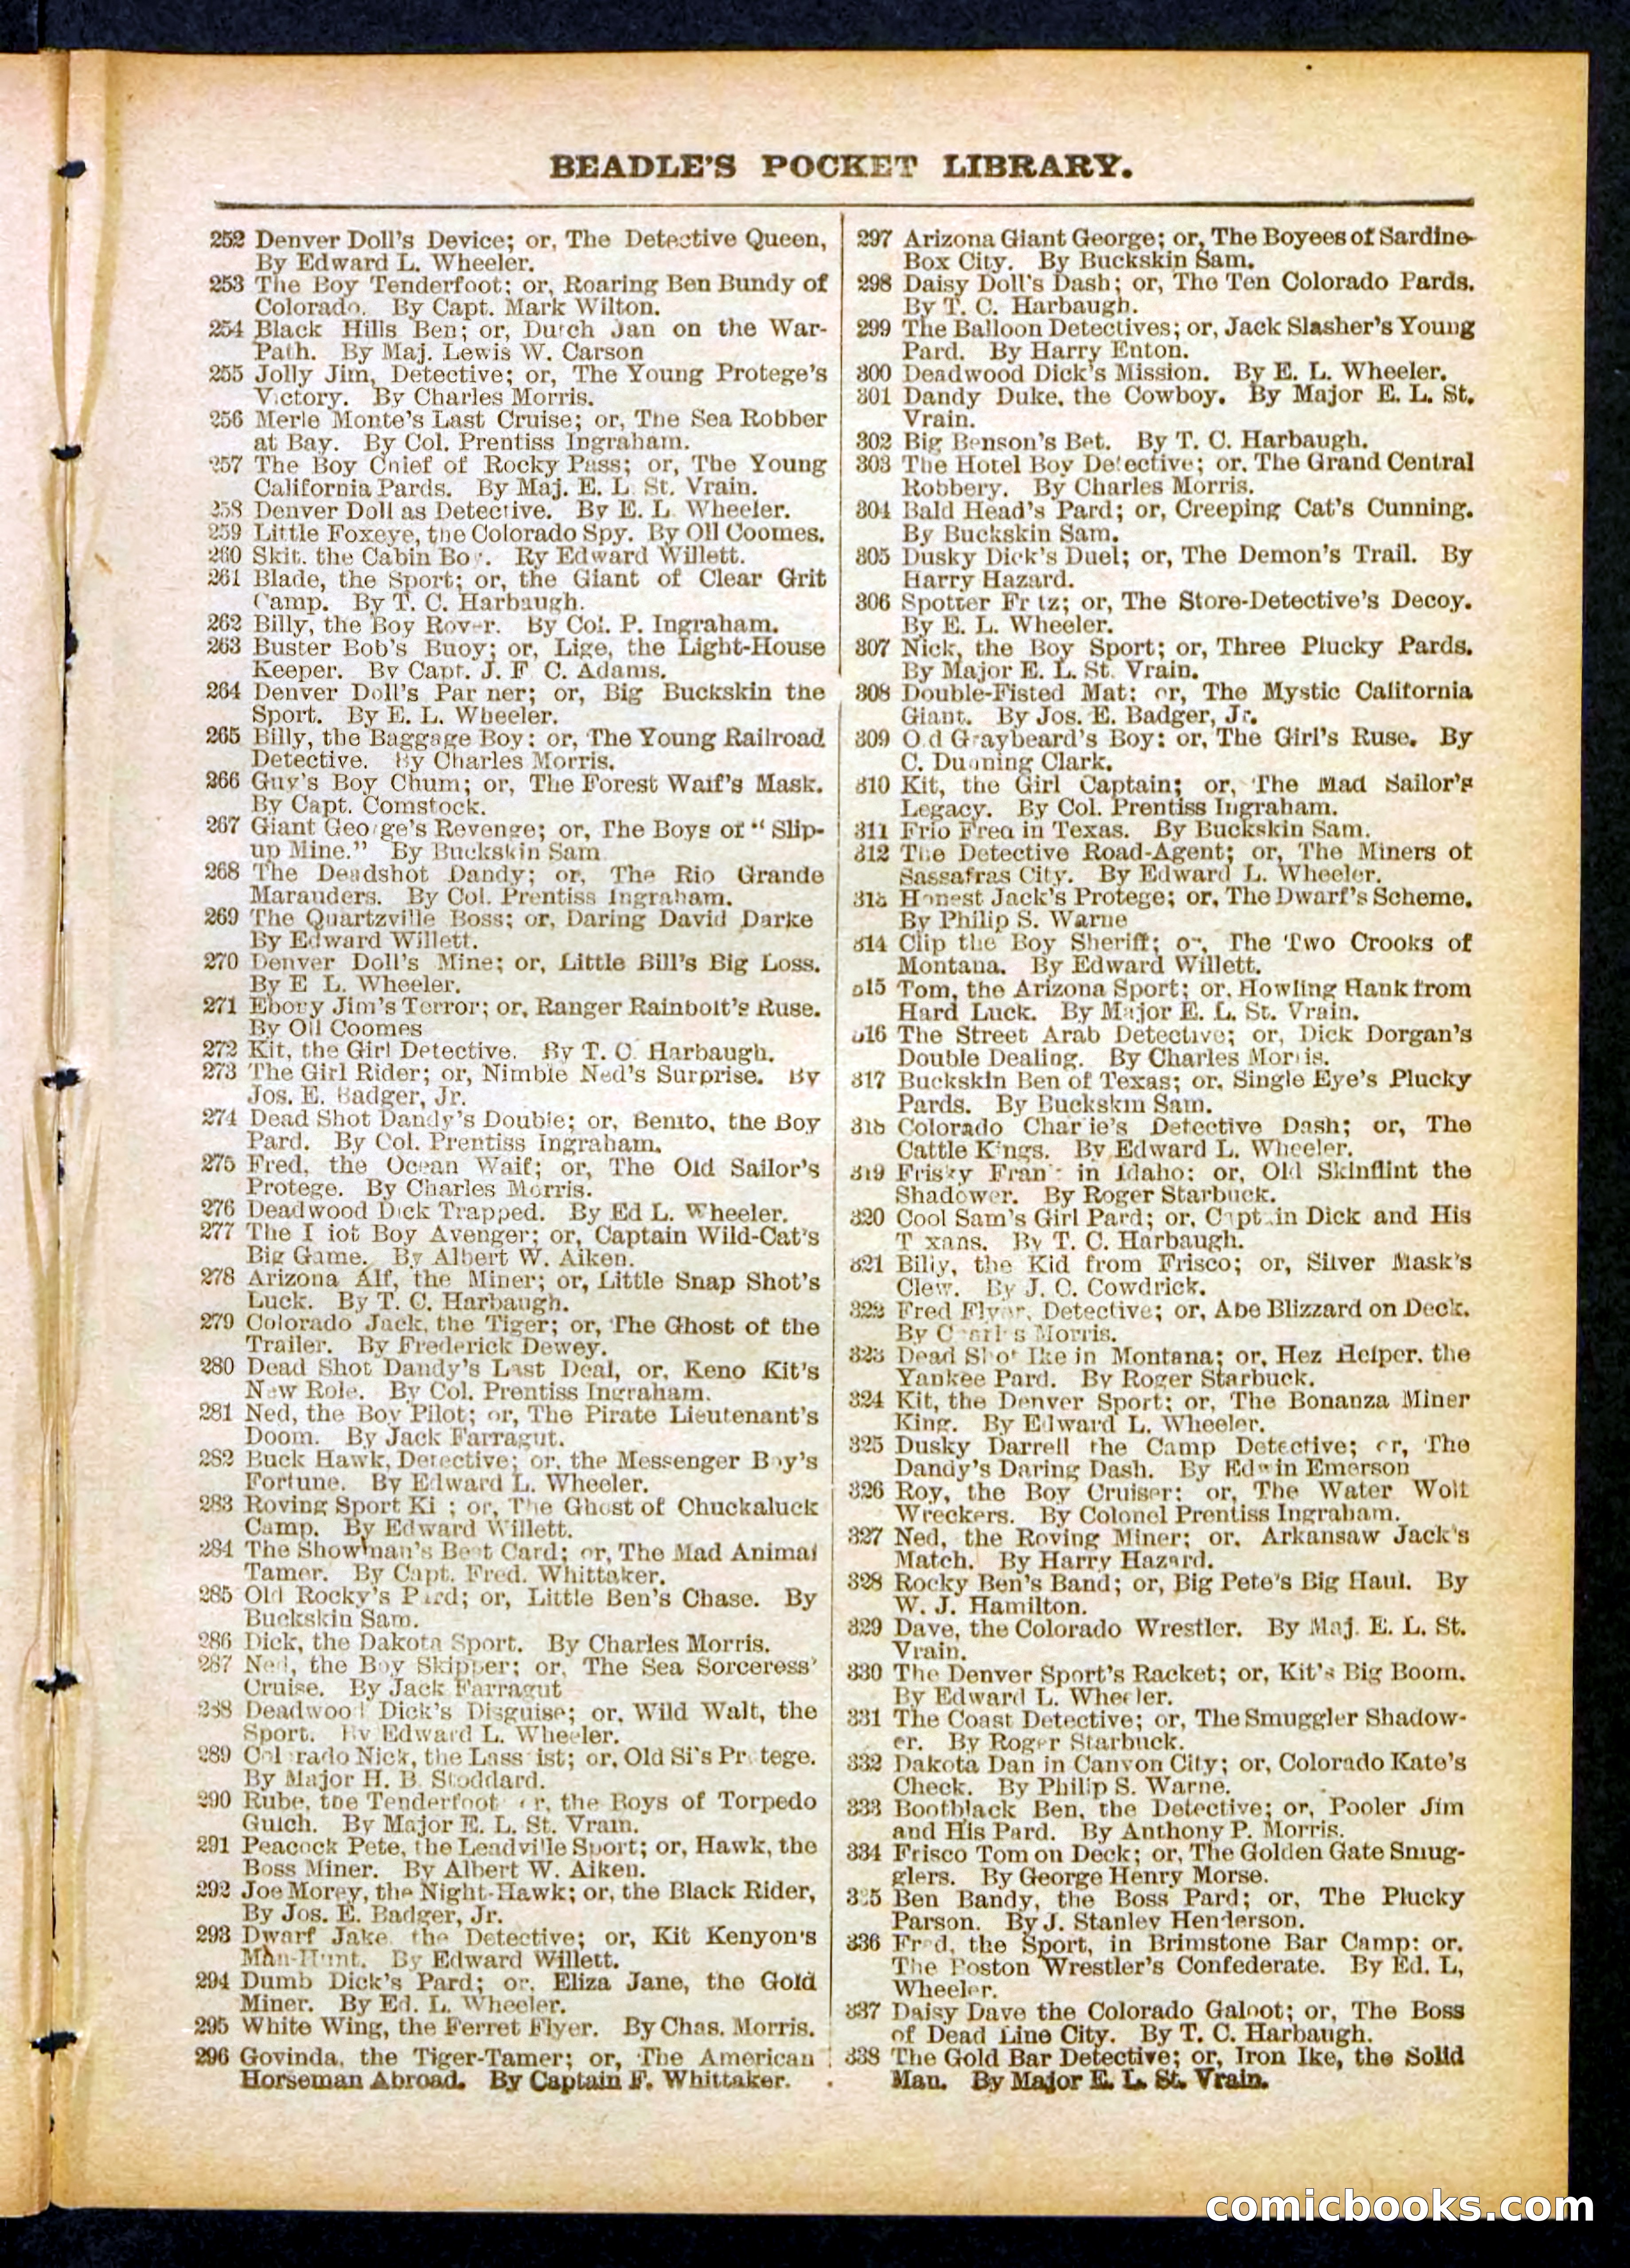 BEADLE'S POCKET LIBRARY.
252 Denver Doll's Device; or, The Detective Queen,
By Edward L. Wheeler.
253 The Boy Tenderfoot; or, Roaring Ben Bundy of
Colorado. By Capt. Mark Wilton.
254 Black Hills Ben; or, Dutch Jan on the War-
Path. By Maj. Lewis W. Carson
255 Jolly Jim, Detective; or, The Young Protege's
Victory. By Charles Morris.
256 Merle Monte's Last Cruise; or, The Sea Robber
at Bay. By Col. Prentiss Ingraham.
257 The Boy Chief of Rocky Pass; or, The Young
California Pards. By Maj. E. L. St. Vrain.
258 Denver Doll as Detective. By E. L. Wheeler.
259 Little Foxeye, the Colorado Spy. By Oll Coomes.
260 Skit, the Cabin Boy. By Edward Willett.
261 Blade, the Sport; or, the Giant of Clear Grit
Camp. By T. C. Harbaugh.
262 Billy, the Boy Rover. By Col. P. Ingraham.
263 Buster Bob's Buoy; or, Lige, the Light-House
Keeper. By Capt. J. F. C. Adams.
264 Denver Doll's Par ner; or, Big Buckskin the
Sport. By E. L. Wheeler.
265 Billy, the Baggage Boy; or, The Young Railroad
Detective. By Charles Morris.
266 Guy's Boy Chum; or, The Forest Waif's Mask.
By Capt. Comstock.
267 Giant George's Revenge; or, The Boys of "Slip-
up Mine." By Buckskin Sam
268 The Deadshot Dandy; or, The Rio Grande
Marauders. By Col. Prentiss Ingraham.
269 The Quartzville Boss; or, Daring David Darke
By Edward Willett.
270 Denver Doll's Mine; or, Little Bill's Big Loss.
By E. L. Wheeler.
271 Ebory Jim's Terror; or, Ranger Rainbolt's Ruse.
By Oll Coomes
272 Kit, the Girl Detective. By T. C. Harbaugh.
273 The Girl Rider; or, Nimble Ned's Surprise. By
Jos. E. Badger, Jr.
274 Dead Shot Dandy's Double; or, Benito, the Boy
Pard. By Col. Prentiss Ingraham.
275 Fred, the Ocean Waif; or, The Old Sailor's
Protege. By Charles Morris.
276 Deadwood Dick Trapped. By Ed L. Wheeler.
277 The I iot Boy Avenger; or, Captain Wild-Cat's
Big Game. By Albert W. Aiken.
278 Arizona Alf, the Miner; or, Little Snap Shot's
Luck. By T. C. Harbaugh.
279 Colorado Jack, the Tiger; or, The Ghost of the
Trailer. By Frederick Dewey.
280 Dead Shot Dandy's Last Deal, or, Keno Kit's
New Role. By Col. Prentiss Ingraham.
281 Ned, the Boy Pilot; or, The Pirate Lieutenant's
Doom. By Jack Farragut.
282 Buck Hawk, Detective; or, the Messenger Boy's
Fortune. By Edward L. Wheeler.
283 Roving Sport Ki ; or, The Ghost of Chuckaluck
Camp. By Edward Willett.
284 The Showman's Best Card; or, The Mad Animal
Tamer. By Capt. Fred. Whittaker.
285 Old Rocky's Pard; or, Little Ben's Chase. By
Buckskin Sam.
286 Dick, the Dakota Sport. By Charles Morris.
287 Ned, the Boy Skipper; or, The Sea Sorceress'
Cruise. By Jack Farragut
288 Deadwood Dick's Disguise; or, Wild Walt, the
Sport. By Edward L. Wheeler.
289 Colorado Nick, the Lassoist; or, Old Si's Protege.
By Major H. B. Stoddard.
290 Rube, the Tenderfoot or, the Boys of Torpedo
Gulch. By Major E. L. St. Vrain.
291 Peacock Pete, the Leadville Sport; or, Hawk, the
Boss Miner. By Albert W. Aiken.
292 Joe Morey, the Night-Hawk; or, the Black Rider,
By Jos. E. Badger, Jr.
293 Dwarf Jake the Detective; or, Kit Kenyon's
Man-Hunt. By Edward Willett.
294 Dumb Dick's Pard; or, Eliza Jane, the Gold
Miner. By Ed. L. Wheeler.
295 White Wing, the Ferret Flyer. By Chas. Morris.
296 Govinda, the Tiger-Tamer; or, The American
Horseman Abroad. By Captain F. Whittaker.
297 Arizona Giant George; or, The Boyees of Sardine-
Box City. By Buckskin Sam.
298 Daisy Doll's Dash; or, The Ten Colorado Pards.
By T. C. Harbaugh.
299 The Balloon Detectives; or, Jack Slasher's Young
Pard. By Harry Enton.
300 Deadwood Dick's Mission. By E. L. Wheeler.
301 Dandy Duke, the Cowboy. By Major E. L. St.
Vrain.
302 Big Benson's Bet. By T. C. Harbaugh.
303 The Hotel Boy Detective; or, The Grand Central
Robbery. By Charles Morris.
304 Bald Head's Pard; or, Creeping Cat's Cunning.
By Buckskin Sam.
305 Dusky Dick's Duel; or, The Demon's Trail. By
Harry Hazard.
306 Spotter Fritz; or, The Store-Detective's Decoy.
By E. L. Wheeler.
307 Nick, the Boy Sport; or, Three Plucky Pards.
By Major E. L. St. Vrain.
308 Double-Fisted Mat; or, The Mystic California
Giant. By Jos. E. Badger, Jr.
309 Old Graybeard's Boy; or, The Girl's Ruse. By
C. Dunning Clark.
310 Kit, the Girl Captain; or, The Mad Sailor's
Legacy. By Col. Prentiss Ingraham.
311 Frio Fred in Texas. By Buckskin Sam.
312 The Detective Road-Agent; or, The Miners of
Sassafras City. By Edward L. Wheeler.
313 Honest Jack's Protege; or, The Dwarf's Scheme.
By Philip S. Warne
314 Clip the Boy Sheriff; or, The Two Crooks of
Montana. By Edward Willett.
315 Tom, the Arizona Sport; or, Howling Hank from
Hard Luck. By Major E. L. St. Vrain.
316 The Street Arab Detective; or, Dick Dorgan's
Double Dealing. By Charles Morris.
317 Buckskin Ben of Texas; or, Single Eye's Plucky
Pards. By Buckskin Sam.
318 Colorado Charlie's Detective Dash; or, The
Cattle Kings. By Edward L. Wheeler.
319 Frisky Frank in Idaho; or, Old Skinflint the
Shadower. By Roger Starbuck.
320 Cool Sam's Girl Pard; or, Captain Dick and His
Texans. By T. C. Harbaugh.
321 Billy, the Kid from Frisco; or, Silver Mask's
Clew. By J. C. Cowdrick.
322 Fred Flyer, Detective; or, Abe Blizzard on Deck.
By Charles Morris.
323 Dead Shot Ike in Montana; or, Hez Helper, the
Yankee Pard. By Roger Starbuck.
324 Kit, the Denver Sport; or, The Bonanza Miner
King. By Edward L. Wheeler.
325 Dusky Darrell the Camp Detective; or, The
Dandy's Daring Dash. By Edwin Emerson
326 Roy, the Boy Cruiser; or, The Water Wolf
Wreckers. By Colonel Prentiss Ingraham.
327 Ned, the Roving Miner; or, Arkansaw Jack's
Match. By Harry Hazard.
328 Rocky Ben's Band; or, Big Pete's Big Haul. By
W. J. Hamilton.
329 Dave, the Colorado Wrestler. By Maj. E. L. St.
Vrain.
330 The Denver Sport's Racket; or, Kit's Big Boom.
By Edward L. Wheeler.
331 The Coast Detective; or, The Smuggler Shadow-
er. By Roger Starbuck.
332 Dakota Dan in Canyon City; or, Colorado Kate's
Check. By Philip S. Warne.
333 Bootblack Ben, the Detective; or, Pooler Jim
and His Pard. By Anthony P. Morris.
334 Frisco Tom on Deck; or, The Golden Gate Smug-
glers. By George Henry Morse.
335 Ben Bandy, the Boss Pard; or, The Plucky
Parson. By J. Stanley Henderson.
336 Fred, the Sport, in Brimstone Bar Camp; or.
The Boston Wrestler's Confederate. By Ed. L,
Wheeler.
337 Daisy Dave the Colorado Galoot; or, The Boss
of Dead Line City. By T. C. Harbaugh.
338 The Gold Bar Detective; or, Iron Ike, the Solid
Man. By Major E. L. St. Vrain.
comicbooks.com